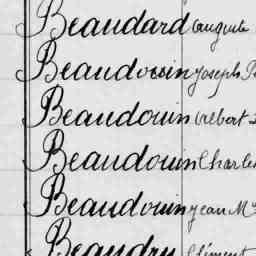 Beaudard Auguste
Beaudouin Joseph
Beaudouin Albert
Beaudouin Charles
Beaudouin Jean M
Beaudry Clément